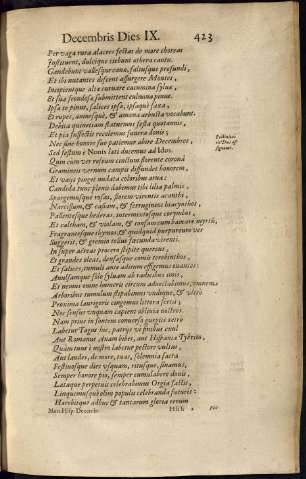 Decembris Dies IX.
423
Per vaga rura alacres festas de more choreas
Instituent, dulcique ciebunt æthera cantu.
Gandebunt vallesque cauæ, saltusque profundi,
Et ibi nutantes discent assurgere Montes,
Incipientque alta cornare cacumina sylua
Et sua frondosa submittent culmina pinus.
Ipsa te pinus, salices ipsæ, ipsaque saxa,
Et rupes, amnesque, & amœna arbusta vocabunt.
Debita quotiectam statuemus festa quotannis,
Et pia susceptis recolemus munera donis;
Nec sine honore suo patiemur abire Decembres,
Sed festum à Nonis lati ducemus ad Idus.
Quin cùm ver rosеum cinctum florente coronâ
Gramineis vernum campis diffundet honorem,
Et varijs pinget nudata coloribus arua:
Candida tunc plenis dabimus tibi lilia palmis,
Spargemusque rosas, florem virentis acanthi,
Narcissum, & casiam, & ferrugineos hiacynthos,
Pallentesque hederas, intermixtosque corymbos,
Et caltham, & violam, & consanctum baccare myrthũ,
Fragrantesque thymos, & quidquid purpureum ver
Suggerit, & gremio tellus fœcunda virenti.
In super aëreas procera stepite quercus,
Et grandes oleas, densasque comis terebinthos,
Et salices, tumuli ante aditum effigemus euntes:
Auulsamque solo syluam ab radicibus imis,
Et nemus omne humeris circum aduectabimus,
Arboribus tumulum stepabimus vndique, & vltrò
Proxima laurigeris cingemus littora sertis;
Nec sensus vnquam capient obliuia nostros.
Nam prius in fontem conuersa gurgite retro
Labetur Tagus hic, patrijs vè finibus exul
Aut Romanus Anam bibet, aut Hispania Tybrim,
Quàm tuus è nostro labatur pectore vultus,
Aut laudes, de more, tuas, solemnia facta
Festiuosque dies vsquam, ritusque, sinamus,
Semper honore pio, semper cumulabere donis,
Lataque perpetuis celebrabimus Orgia saltis,
Linquemusque olim populis celebranda futuris:
Hærebitque adhuc & tantarum gloria rerum
Mart. Hisp. Decemb.
Hhh 2
Per